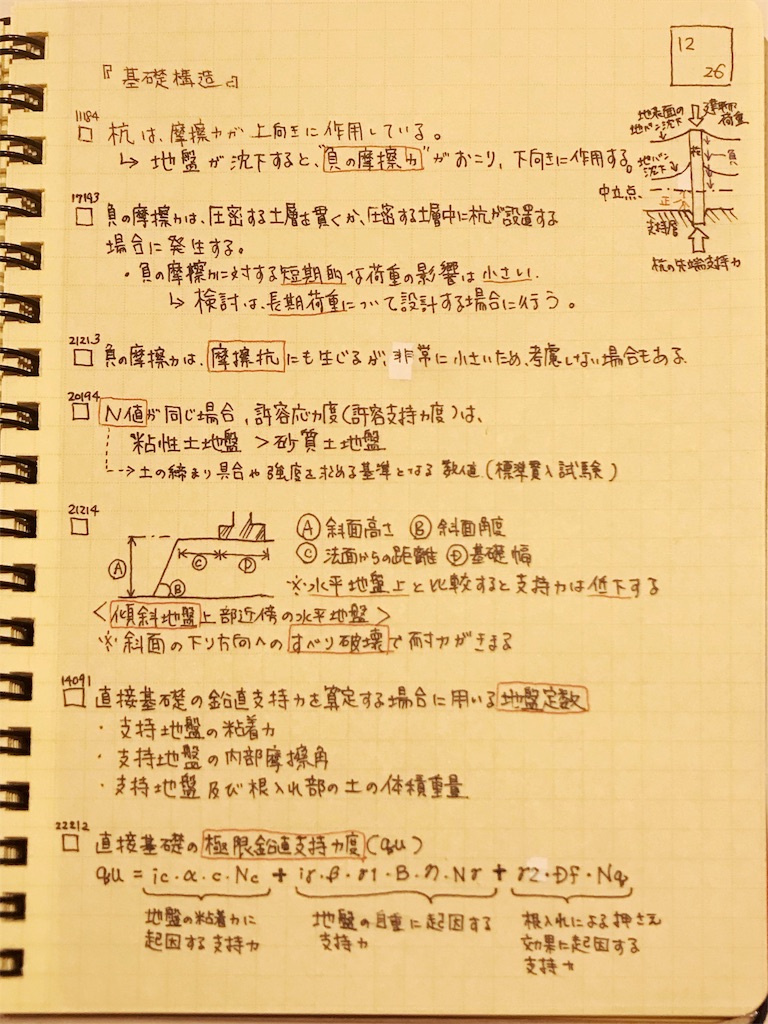 12
26
『基礎構造』
11184
杭は、摩擦力が上向きに作用している。
↳ 地盤が沈下すると、"負の摩擦力"がおこり、下向きに作用する。
地表面の
地バン沈下
建物の
荷重
杭
負
地バン
沈下
中立点
正
支持層
杭の先端支持力
17193
負の摩擦力は、圧密する土層を貫くか、圧密する土層中に杭が設置する
場合に発生する。
・負の摩擦力に対する短期的な荷重の影響は小さい.
↳ 検討は、長期荷重について設計する場合に行う。
21213
負の摩擦力は、摩擦杭にも生じるが、非常に小さいため、考慮しない場合もある
20194
N値が同じ場合、許容応力度(許容支持力度)は、
粘性土地盤 > 砂質土地盤
→ 土の締まり具合や強度を求める基準となる数値.(標準貫入試験)
21214
A
B
C
D
Ⓐ 斜面高さ Ⓑ 斜面角度
Ⓒ 法面からの距離 Ⓓ 基礎幅
※水平地盤上と比較すると支持力は低下する
<傾斜地盤上部近傍の水平地盤>
※斜面の下り方向へのすべり破壊で耐力がきまる
14091
直接基礎の鉛直支持力を算定する場合に用いる地盤定数
・支持地盤の粘着力
・支持地盤の内部摩擦角
・支持地盤及び根入れ部の土の体積重量
22212
直接基礎の極限鉛直支持力度(qu)
qu = ic・α・c・Nc + ir・β・r1・B・η・Nr + r2・Df・Nq
地盤の粘着力に
起因する支持力
地盤の自重に起因する
支持力
根入れによる押さえ
効果に起因する
支持力